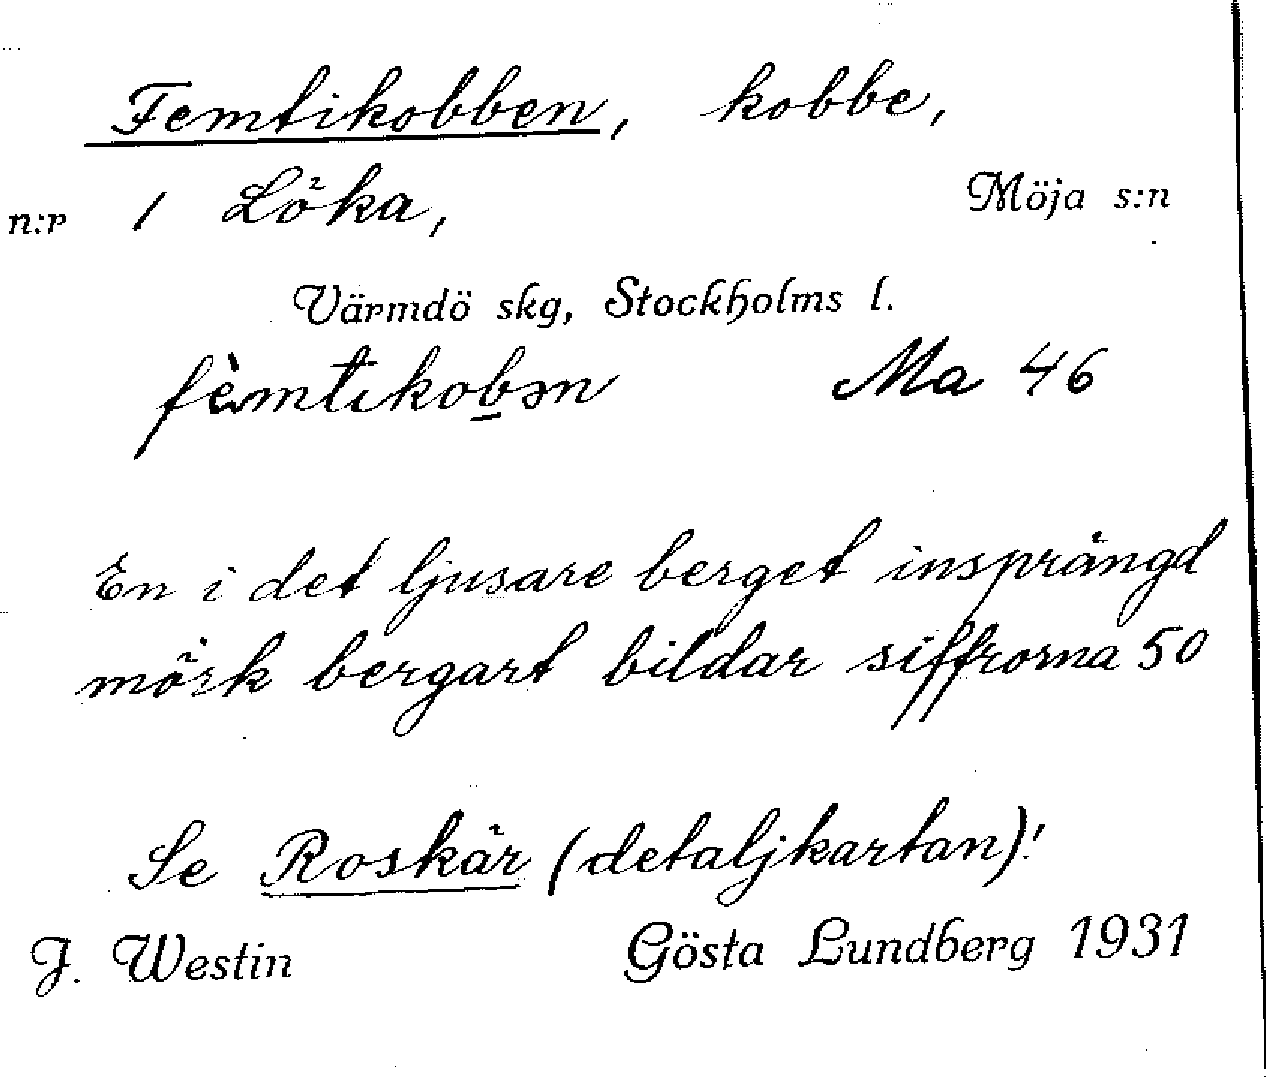 Femtikobben, kobbe,
n:r 1 Löka, Möja s:n
Värmdö skg, Stockholms l.
fèmtikob̲ən Ma 46
En i det ljusare berget insprängd
mörk bergart bildar siffrorna 50
Se Roskär (detaljkartan)!
J. Westin Gösta Lundberg 1931